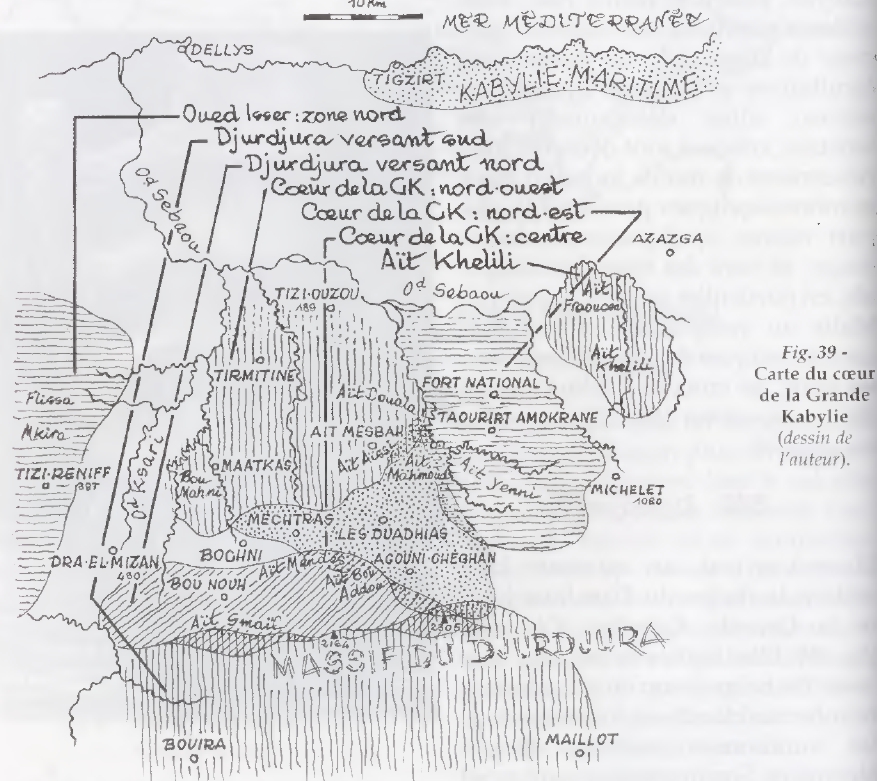 10 Km
MER MÉDITERRANÉE
DELLYS
TIGZIRT
KABYLIE MARITIME
Oued Isser : zone nord
Djurdjura versant sud
Djurdjura versant nord
Cœur de la GK : nord-ouest
Cœur de la GK : nord-est
Cœur de la GK : centre
Aït Khelili
Od Sebaou
AZAZGA
TIZI-OUZOU
189
Od Sebaou
Aït
Fraoucen
Aït
Khelili
Fig. 39 -
Carte du cœur
de la Grande
Kabylie
(dessin de
l'auteur).
TIRMITINE
Flissa
Mkira
FORT NATIONAL
Aït Douala
TAOURIRT AMOKRANE
AIT MESBAH
Aït
Mahmoud
Aït Yenni
TIZI-RENIFF
Od Ksari
Bou
Mahni
MAATKAS
MICHELET
1080
MECHTRAS
LES OUADHIAS
DRA-EL-MIZAN
BOGHNI
Aït Mendes
AGOUNI-GHEGHAN
BOU NOUH
Aït Bou
Addou
Aït Smaïl
2164
MASSIF DU DJURDJURA
BOUIRA
MAILLOT